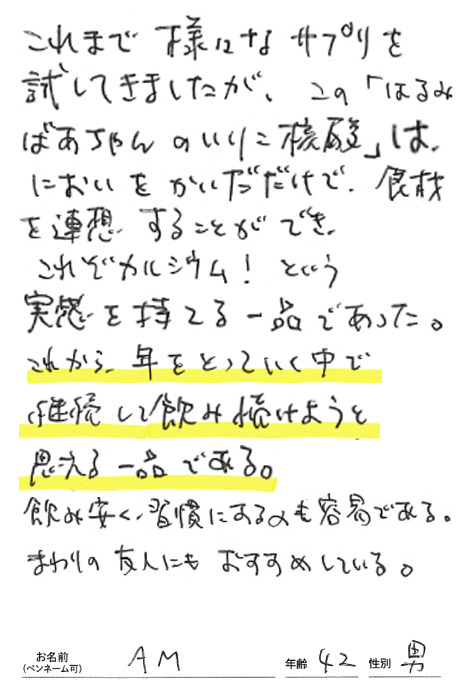 これまで様々なサプリを
試してきましたが、この「はるみ
ばあちゃんのいりこ核酸」は、
においをかいだだけで、食材
を連想することができ、
これぞカルシウム！という
実感を持てる一品であった。
これから、年をとっていく中で
継続して飲み続けようと
思える一品である。
飲み安く、習慣にするのも容易である。
まわりの友人にもおすすめしている。
お名前 (ペンネーム可) AM 年齢 42 性別 男